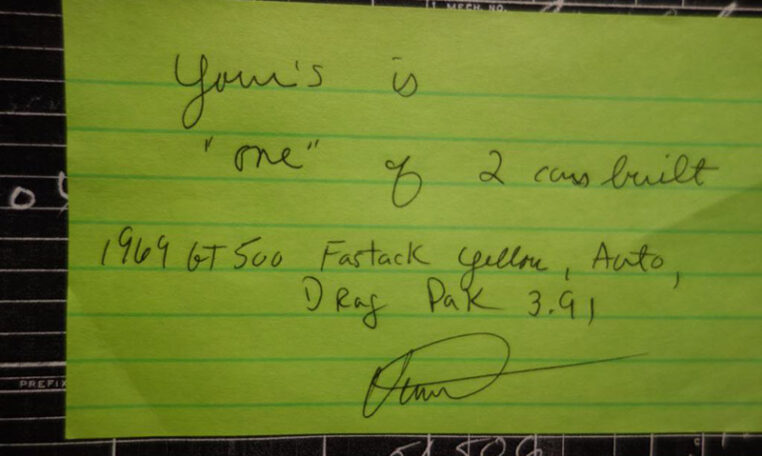 MECH. NO.
Your's is
"one" of 2 cars built
1969 GT500 Fastack Yellow, Auto,
Drag Pak 3.91
PREFIX